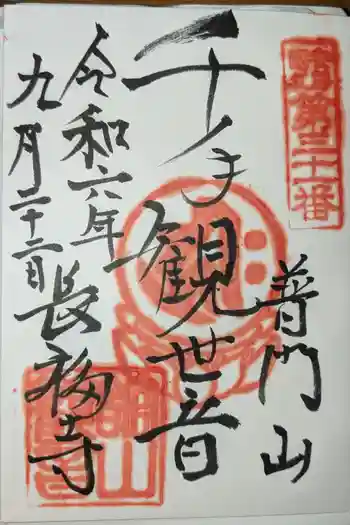 普門山
千手観世音
令和六年
九月二十二日
長福寺
第三十番